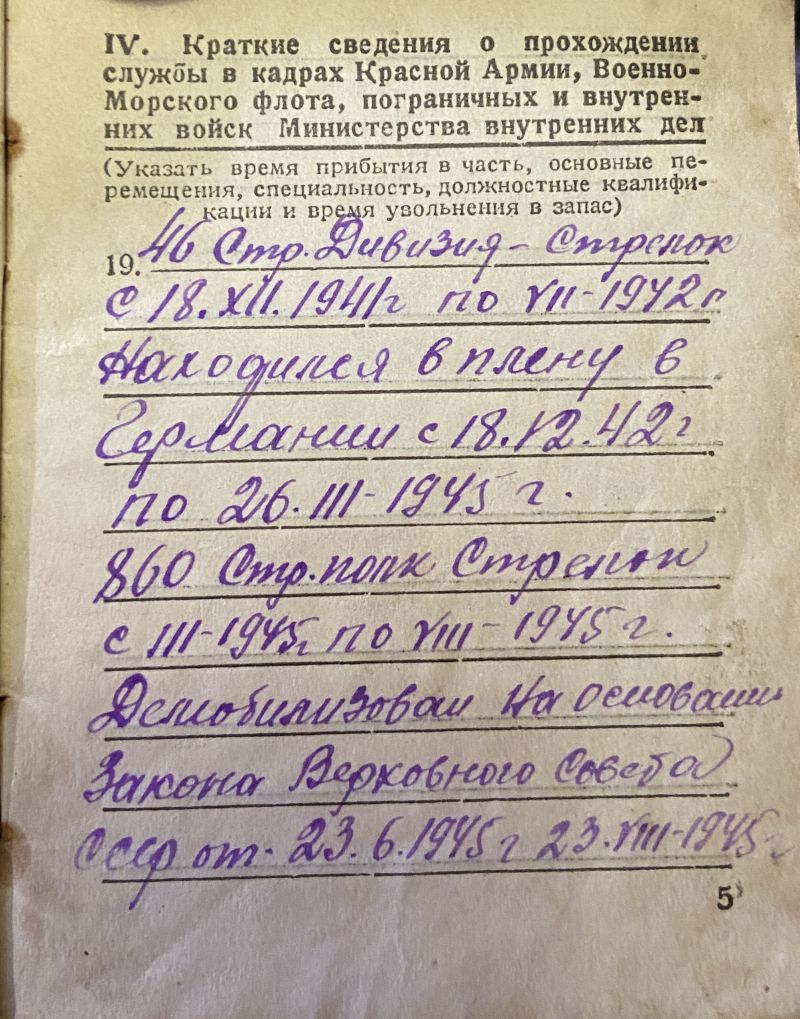 IV. Краткие сведения о прохождении
службы в кадрах Красной Армии, Военно-
Морского флота, пограничных и внутрен-
них войск Министерства внутренних дел
(Указать время прибытия в часть, основные пе-
ремещения, специальность, должностные квалифи-
кации и время увольнения в запас)
19. 46 Стр. Дивизия - Стрелок
с 18. XII. 1941г по VII - 1942г
Находился в плену в
Германии с 18.12.42г
по 26. III - 1945 г.
860 Стр. полк Стрелок
с III - 1945г по VIII - 1945 г.
Демобилизован на основании
Закона Верховного Совета
СССР от 23.6.1945г 23. VIII - 1945г
5